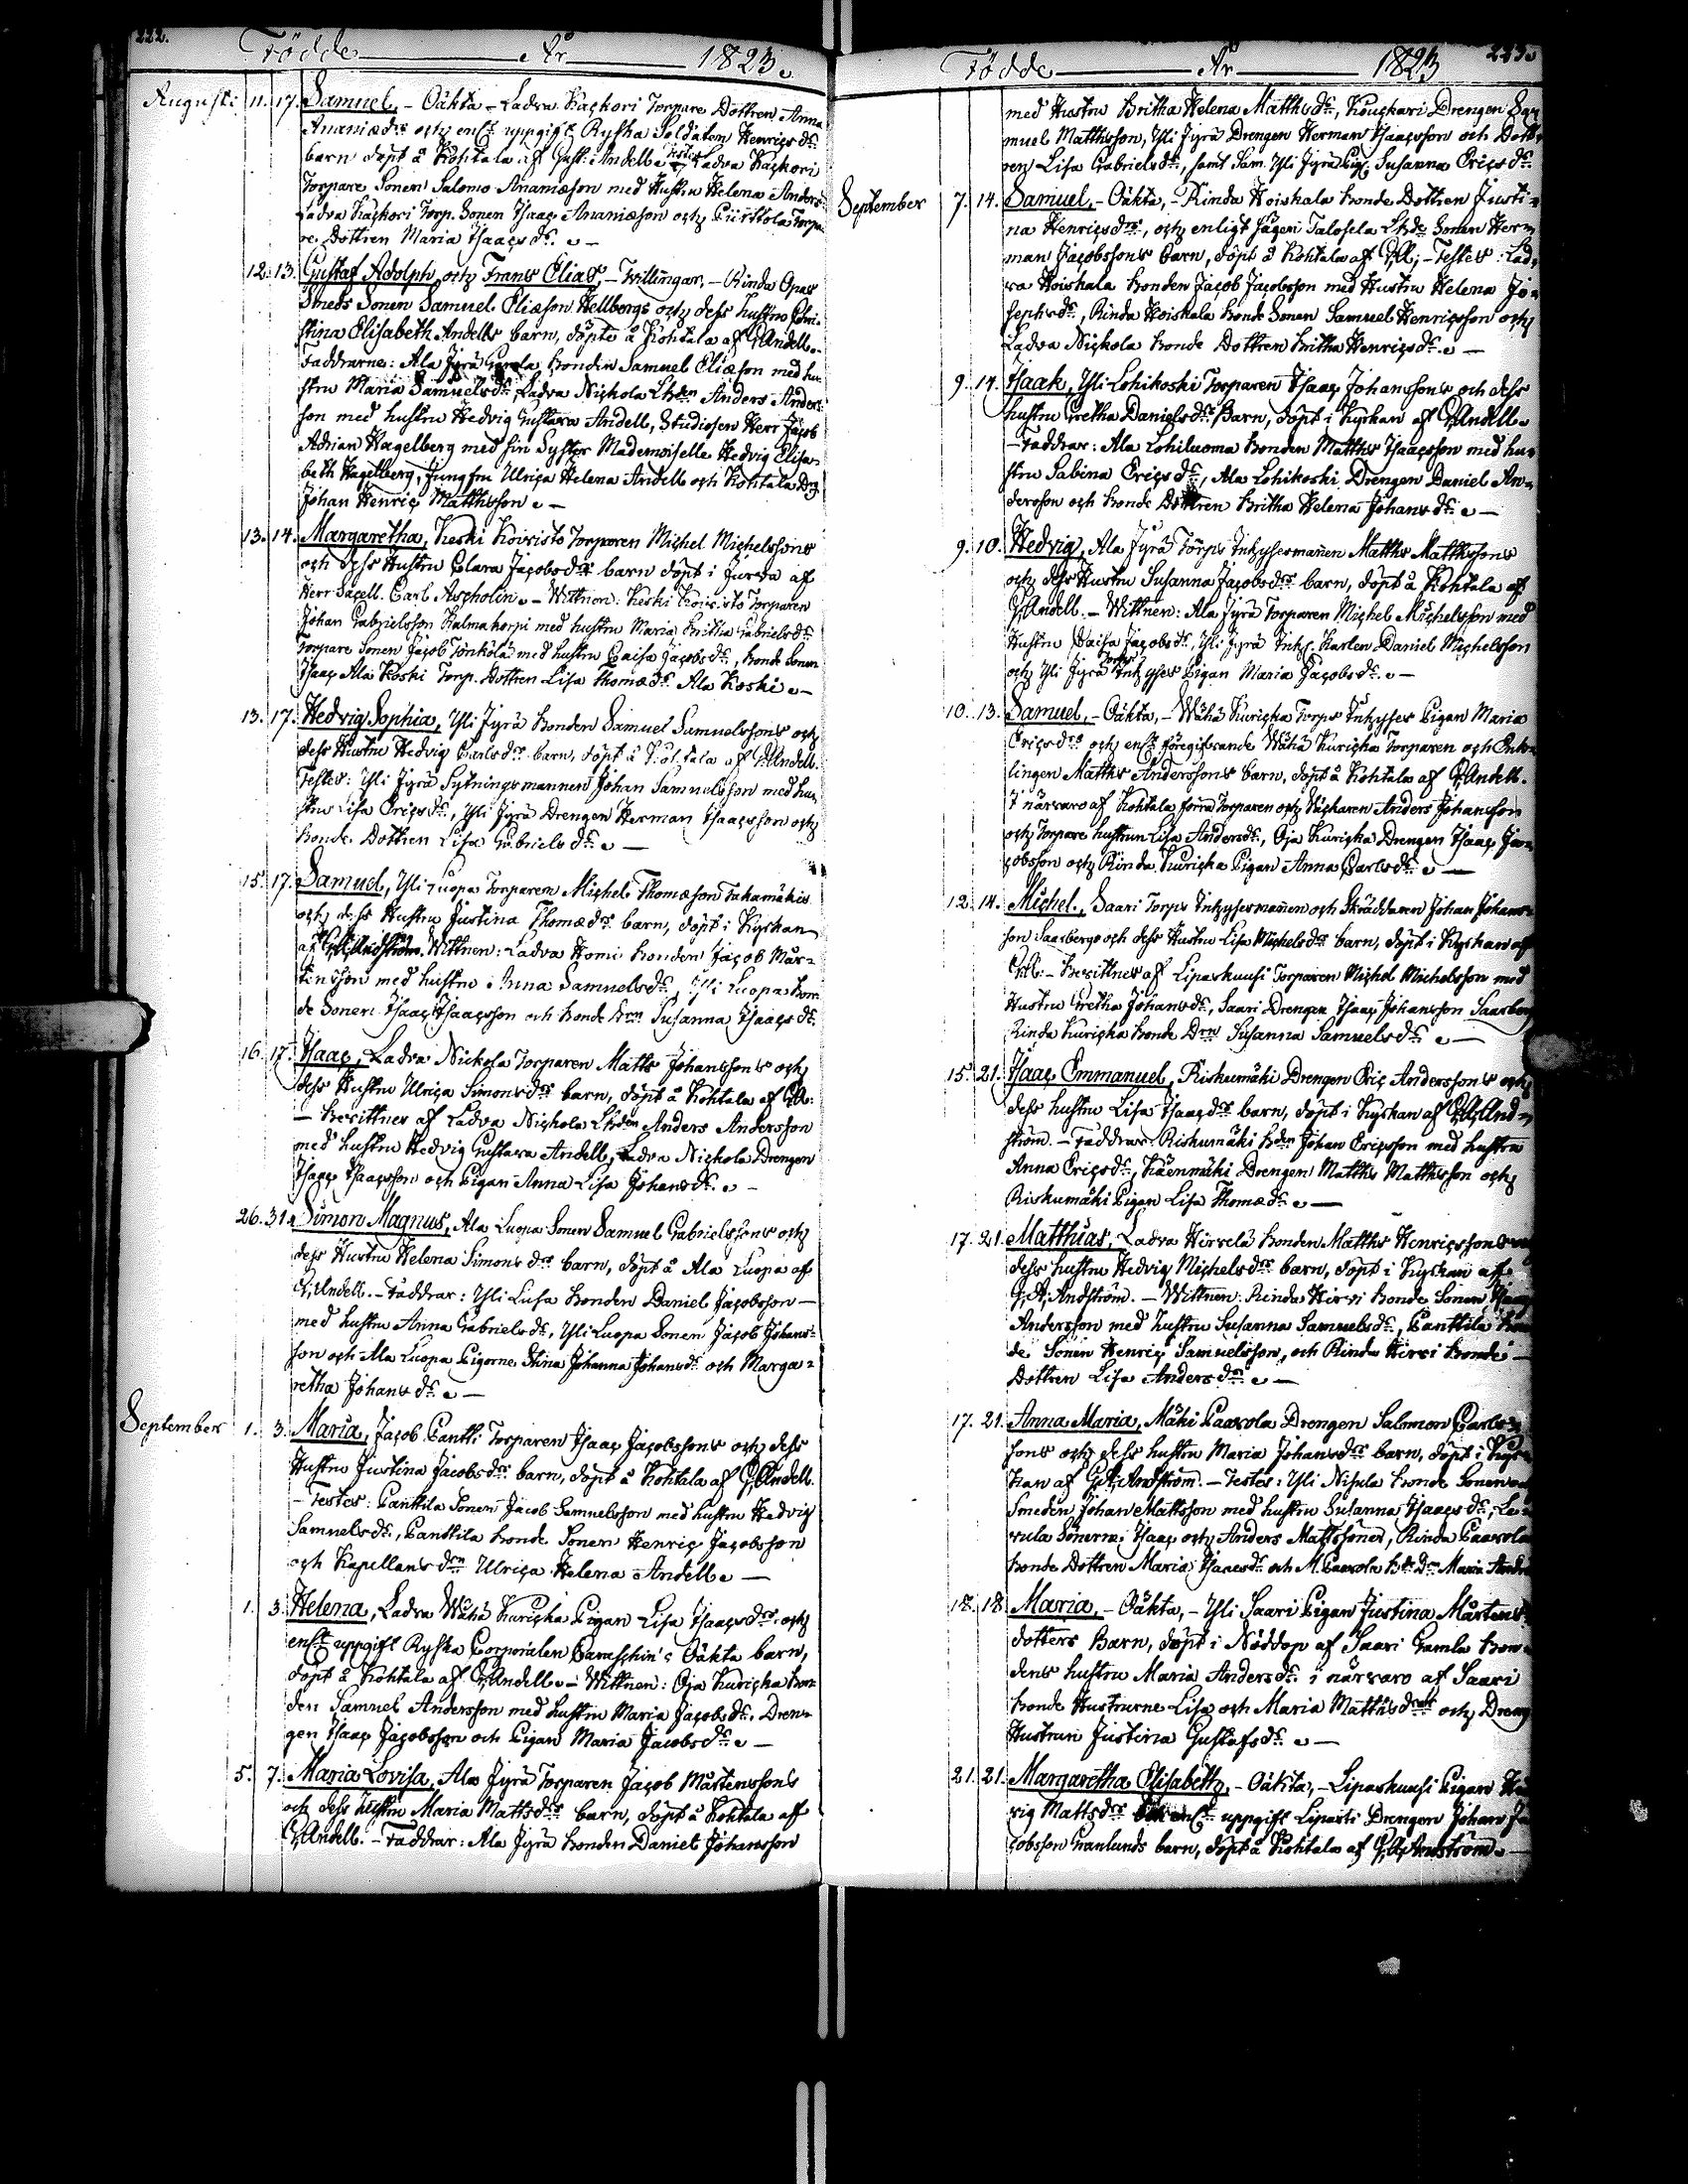 222.
Födde År 1823.
Augusti 11. 17. Samuel, - Oäkta - Ladva Kackori Torpare Dottren Anna
Ananiædrs och enlt uppgift Ryska Soldaten Henrics ds
barn döpt å Kohtala af Gust: Andell. Testes Ladva Kackori
Torpare Sonen Salomo Ananiæson med Hustru Helena Anders
Ladva Kackori Torp. Sonen Isaac Ananiæson och Torpa-
re Dottren Maria Isaacs ds. -
12. 13. Gustaf Adolph och Frans Elias, - Twillingar, - Rinda Opas
Smeds Sonen Samuel Eliæson Hellbergs och dess hustrus Chri-
stina Elisabeth Andells barn, döpte å Kohtala af G. Andell.
Faddrarne: Ala Jyrä Bonden Samuel Eliæson med hu-
stru Maria Samuels ds, Ladva Nickola Anders Anders-
son med hustru Hedvig Gustava Andell, Studiosen Herr Jacob
Adrian Hagelberg med sin Syster Mademoiselle Hedvig Elisa-
beth Hagelberg, Jungfru Ulrica Helena Andell och Kohtala Drg
Johan Henric Matthsson. -
13. 14. Margaretha, Keski Koivisto Torparen Michel Michelssons
och dess Hustru Clara Jacobs drs barn döpt i Jurva af
Herr Sacell. Carl Ascholin. - Wittnen: Keski Koivisto Torparen
Johan Gabrielsson Kalmakorpi med hustru Maria Britha Gabriels ds
Torpare Sonen Jacob med hustru Caisa Jacobs ds, Bonde Sonen
Isaac Ala Koski Torp. Dottren Lisa Thomæ ds Ala Koski. -
13. 17. Hedvig Sophia, Yli Jyrä Bonden Samuel Samuelssons och
dess Hustru Hedvig Carls drs barn, döpt å Kohtala af G. Andell.
Testes: Yli Jyrä Sytningsmannen Johan Samuelsson med hu-
stru Lisa Erics ds, Yli Jyrä Drengen Herman Isaacsson och
Bonde Dottren Lisa Gabriels ds. -
15. 17. Samuel, Yli Luopa Torparen Michel Thomæson Takamäkis
och dess Hustru Justina Thomæ drs barn, döpt i Kyrkan
af G. A. Andström. Wittnen: Ladva Homi Bonden Jacob Mår-
tensson med hustru Anna Samuels ds, Yli Luopa Bon-
de Sonen Isaac Isaacsson och Bonde Drn Susanna Isaacs ds.
16. 17. Isaac, Ladva Nickola Torparen Matts Johanssons och
dess Hustru Ulrica Simons drs barn, döpt å Kohtala af GA:
- Bevittnes af Ladva Nickola Anders Andersson
med hustru Hedvig Gustava Andell, Ladva Nickola Drengen
Isaac Isaacsson och Pigan Anna Lisa Johans ds. -
26. 31. Simon Magnus, Ala Luopa Sonen Samuel Gabrielssons och
dess Hustru Helena Simons drs barn, döpt å Ala Luopa af
G. Andell. - Faddrar: Yli Lusa Bonden Daniel Jacobsson -
med hustru Anna Gabriels ds, Yli Luopa Sonen Jacob Johans-
son och Ala Luopa Pigorne Stina Johanna Johans ds och Marga-
retha Johans ds. -
September 1. 3. Maria, Jacob Pantti Torparen Isaac Jacobssons och dess
Hustru Justina Jacobs drs barn, döpt å Kohtala af G. Andell.
- Testes: Panttila Sonen Jacob Samuelsson med hustru Hedvig
Samuels ds, Panttila Bonde Sonen Henric Jacobsson
och Kapellans drn Ulrica Helena Andell. -
1. 3. Helena, Ladva Wähä Kuricka Pigan Lisa Isaacs drs och
enlt uppgift Ryska Corporalen Paraschin's Oäkta barn,
döpt å Kohtala af G. Andell. - Wittnen: Oja Kuricka Bon-
den Samuel Andersson med hustru Maria Jacobs ds. Dren-
gen Isaac Jacobsson och Pigan Maria Jacobs ds. -
5. 7. Maria Lovisa, Ala Jyrä Torparen Jacob Mårtenssons
och dess hustru Maria Matts drs barn, döpt å Kohtala af
G. Andell. - Faddrar: Ala Jyrä Bonden Daniel Johansson
223.
Födde År 1823
med Hustru Britha Helena Matths ds, Kouckari Drengen Sa-
muel Matthsson, Yli Jyrä Drengen Herman Isaacsson och Dott-
ren Lisa Gabriels ds, samt Yli Jyrä Pig. Susanna Erics ds.
September 7. 14. Samuel, - Oäkta, - Rinda Koiskala Bonde Dottren Justi-
na Henrics drs, och enligt sägen Talosela Sonen Her-
man Jacobssons barn, döpt å Kohtala af GA; - Testes: Lad-
va Koiskala Bonden Jacob Jacobsson med Hustru Helena Jo-
sephs ds, Rinda Koiskala Bonde Sonen Samuel Henricsson och
Ladva Nickola Bonde Dottren Britha Henrics ds. -
9. 14. Isaak, Yli Lohikoski Torparen Isaac Johanssons och dess
hustru Gretha Daniels drs Barn, döpt i Kyrkan af G. Andell.
- Faddrar: Ala Lohiluoma Bonden Matths Isaacsson med hu-
stru Sabina Erics ds, Ala Lohikoski Drengen Daniel An-
dersson och Bonde Dottren Britha Helena Johans ds. -
9. 10. Hedvig, Ala Jyrä Torps Inhysesmannen Matths Matthssons
och dess Hustru Susanna Jacobs drs barn, döpt å Kohtala af
G. Andell. - Wittnen: Ala Jyrä Torparen Michel Michelsson med
Hustru Caisa Jacobs ds, Yli Jyrä Inhs. Karlen Daniel Michelsson
och Yli Jyrä Torps Inhyses Pigan Maria Jacobs ds. -
10. 13. Samuel, - Oäkta, - Wähä Kuricka Torps Inhyses Pigan Maria
Erics drs och enlt föregifvande Wähä Kuricka Torparen och Enk-
lingen Matths Anderssons barn, döpt å Kohtala af G. Andell.
I närvaro af Kohtala förra Torparen och Anders Johansson
och Torpare hustrun Lisa Anders ds, Oja Kuricka Drengen Isaac Ja-
cobsson och Rinda Kuricka Pigan Anna Carls ds. -
12. 14. Michel, Saari Torps Inhysesmannen och Skräddaren Johan Johans-
son Saarbergs och dess Hustru Lisa Michels drs barn, döpt i Kyrkan af
- Bevittnes af Liparkuusi Torparen Michel Michelsson med
Hustru Gretha Johans ds, Saari Drengen Isaac Johansson Saarberg
Rinda Kuricka Bonde Drn Susanna Samuels ds. -
15. 21. Isaac Emmanuel, Riskumäki Drengen Eric Anderssons och
dess hustru Lisa Isaacs drs barn, döpt i Kyrkan af G. A. And-
ström. - Faddrar Riskumäki Bden Johan Ericsson med hustru
Anna Erics ds, Käenmäki Drengen Matths Matthsson och
Riskumäki Pigan Lisa Thomæ ds. -
17. 21. Matthias, Ladva Hirvelä Bonden Matths Henricssons
dess hustru Hedvig Michels drs barn, döpt i Kyrkan af
G. A. Andström. - Wittnen: Rinda Hirvi Bonde Sonen Isaac
Andersson med hustru Susanna Samuels ds, Panttila Bon
de Sonen Henric Samuelsson, och Rinda Hirvi Bonde -
Dottren Lisa Anders ds. -
17. 21. Anna Maria, Mäki Paavola Drengen Salomon Carls-
sons och dess hustru Maria Johans drs barn, döpt i Kyr-
kan af G. A. Andström. - Testes: Yli Nisula Bonde Sonen
Smeden Johan Mattsson med hustru Susanna Isaacs ds, Le-
vula Sönerne Isaac och Anders Mattssöner, Rinda Paavola
Bonde Dottren Maria Isaacs ds och M. Paavola Bde Drn Maria Anders
18. 18 Maria, - Oäkta, - Yli Saari Pigan Justina Mårtens
dotters Barn, döpt i Nöddop af Saari Gamla Bon-
dens hustru Maria Anders ds i närvaro af Saari
Bonde Hustrurne Lisa och Maria Matths och Dreng
Hustrun Justina Gustafs ds. -
21. 21. Margaretha Elisabeth, - Oäkta, - Liparkuusi Pigan
vig Matts drs enlt uppgift Liparti Drengen Johan Ja
cobsson Granlunds barn, döpt å Kohtala af G. A. Andström. -